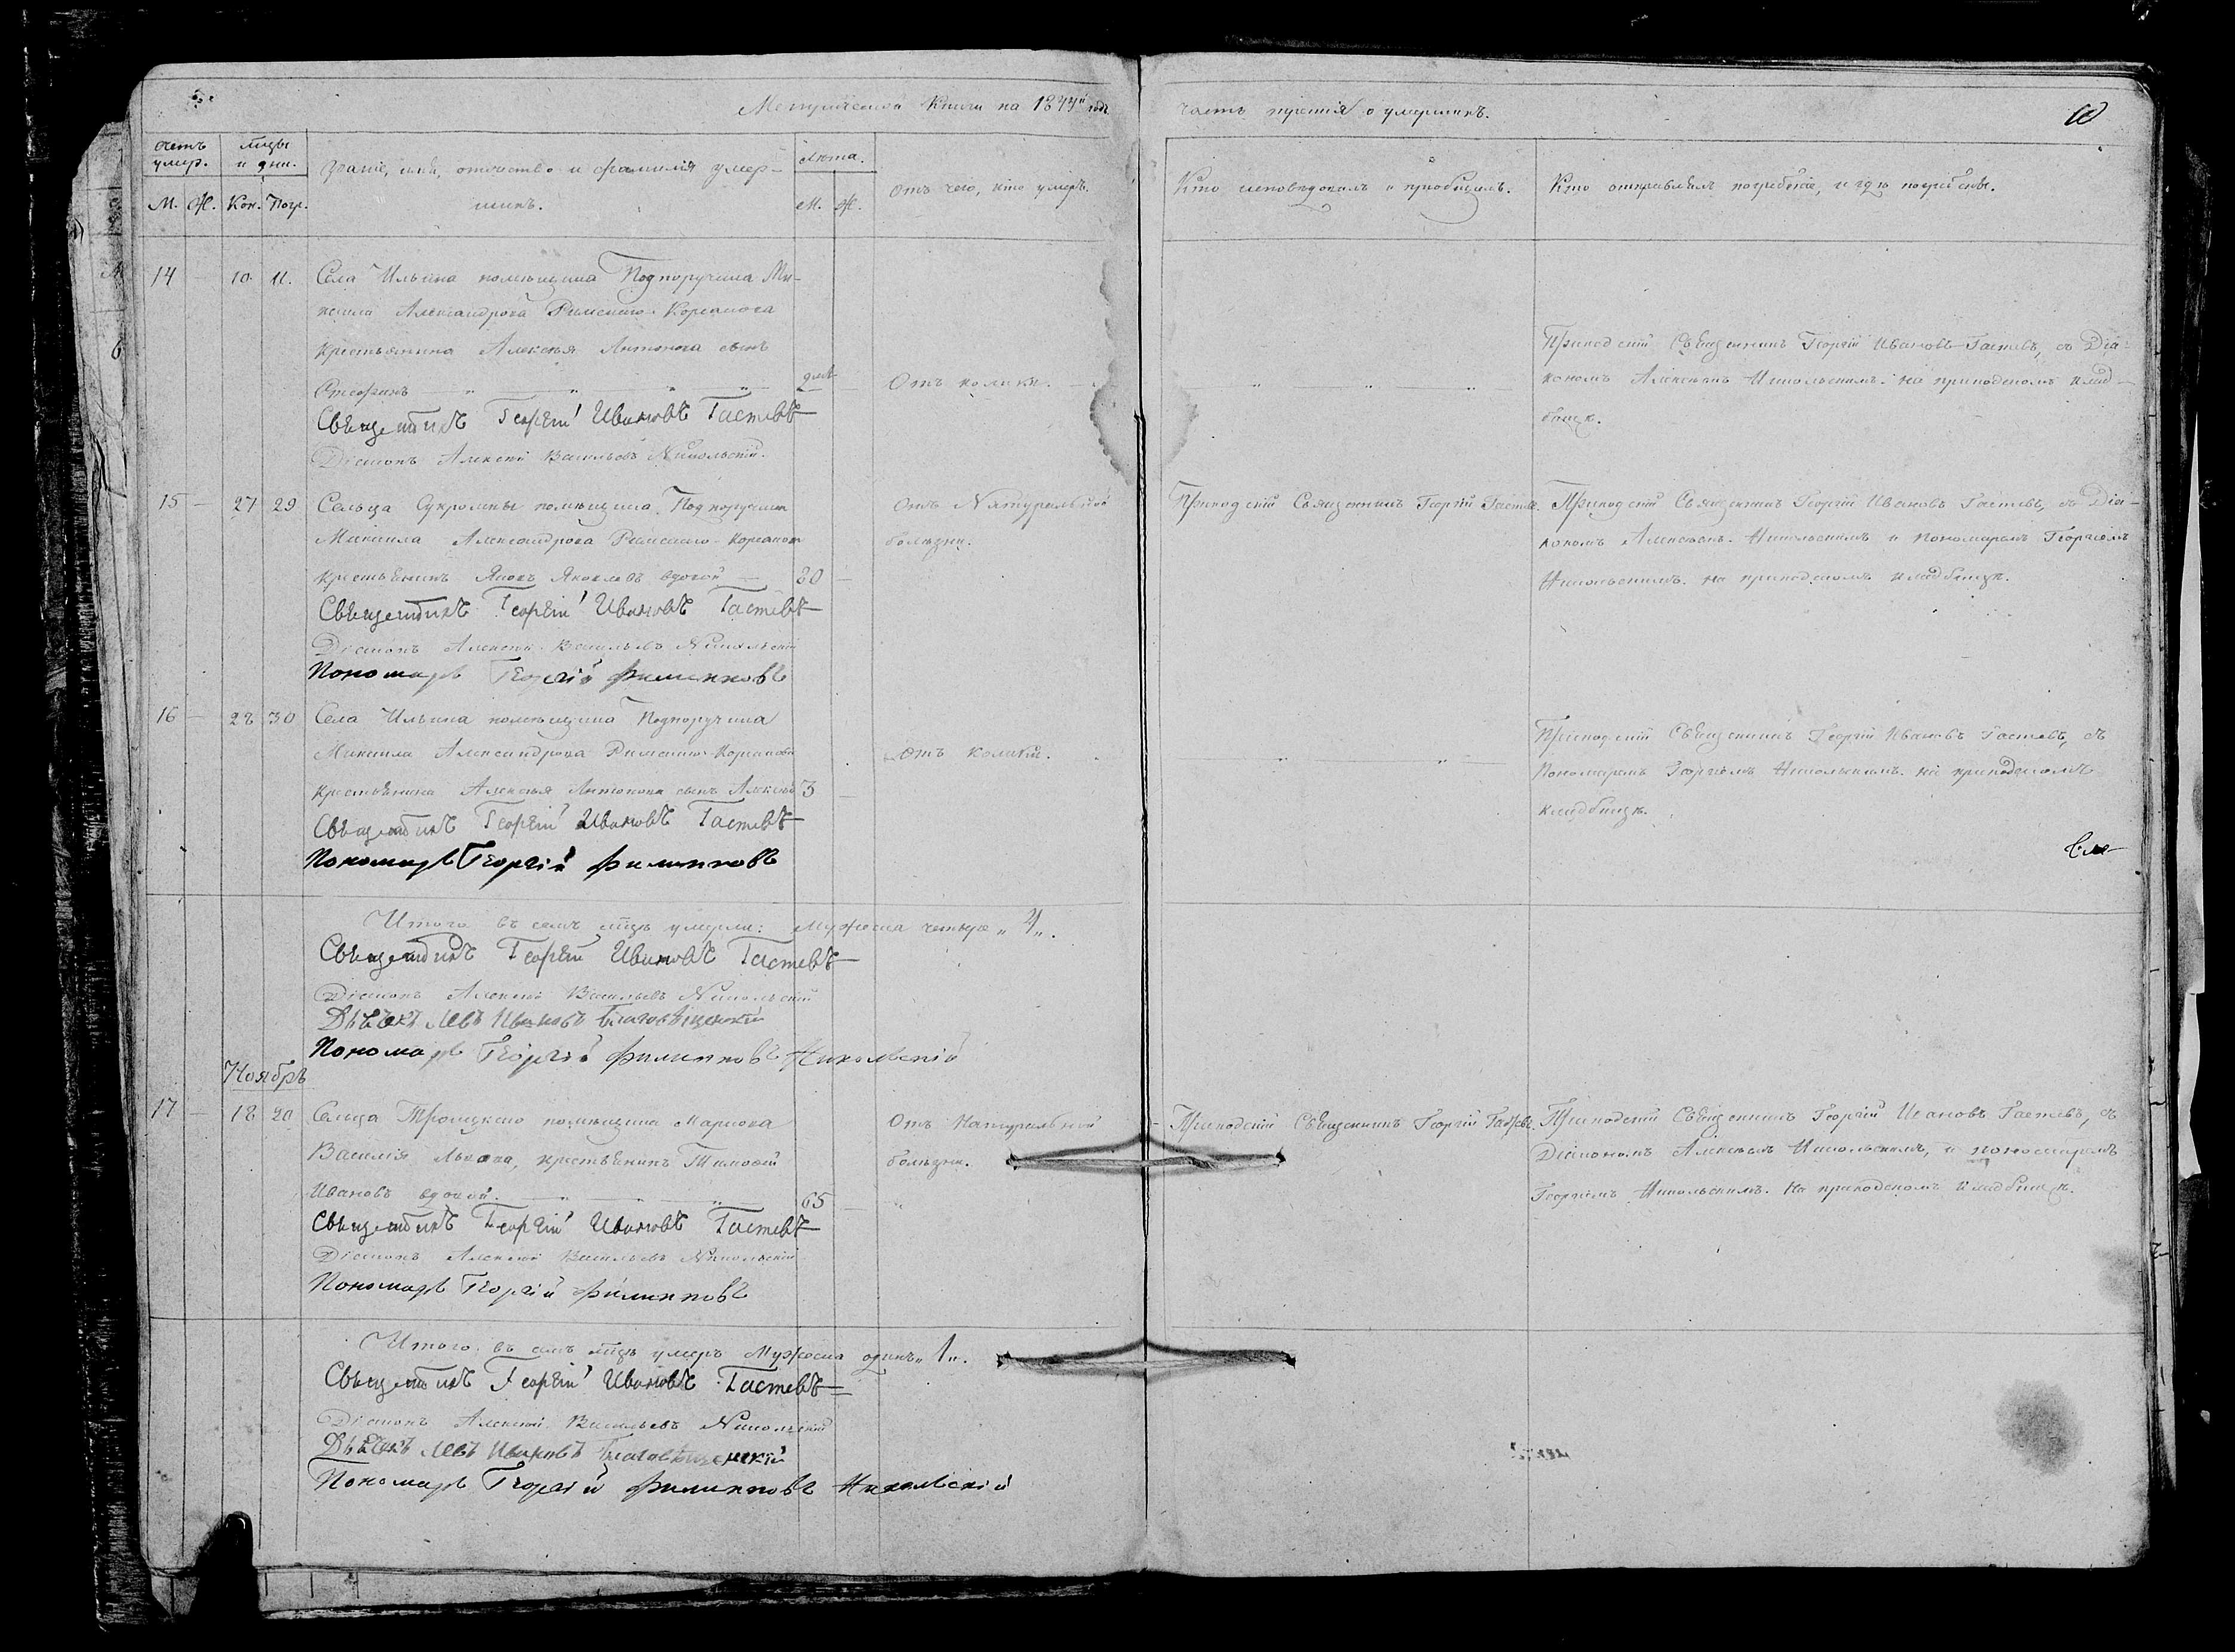 Метрической книги на 1844й годъ
часть третія о умершихъ.
Счетъ умер.
мцы и дни.
Званіе, имя, отечество и фамилія умер-
шихъ.
лѣта.
М. Ж. Кон. Погр.
М. Ж.
Отъ чего, кто умеръ.
Кто исповѣдовалъ и пріобщилъ.
Кто отправлялъ погребеніе, и гдѣ погребены.
14 — 10 11. Села Ильина помѣщика Подпоручика Ми-
хаила Александрова Римскаго-Корсакова
крестьянина Алексѣя Антонова сынъ
Отъ колики.
Священникъ Георгій Ивановъ Гастевъ
Діаконъ Алексѣй Васильевъ Никольскій.
Приходскій Священникъ Георгій Ивановъ Гастевъ, съ Діа-
кономъ Алексѣемъ Никольскимъ. на приходскомъ клад-
бищѣ.
15 — 27 29 Сельца Сукромны помѣщика Подпоручика
Михаила Александрова Римскаго-Корсакова
крестьянинъ Яковъ Яковлевъ вдовой — 80 —
Отъ Натуральной
болѣзни.
Священникъ Георгій Ивановъ Гастевъ
Діаконъ Алексѣй Васильевъ Никольскій
Пономарь Георгій Филипповъ
Приходскій Священникъ Георгій Гастевъ.
Приходскій Священникъ Георгій Ивановъ Гастевъ, съ Діа-
кономъ Алексѣемъ Никольскимъ и пономаремъ Георгіемъ
Никольскимъ. на приходскомъ кладбищѣ.
16 — 28 30 Села Ильина помѣщика Подпоручика
Михаила Александрова Римскаго-Корсакова
крестьянина Алексѣя Антонова сынъ Алексѣй 3 —
Отъ колики.
Священникъ Георгій Ивановъ Гастевъ
Пономарь Георгій Филипповъ
Приходскій Священникъ Георгій Ивановъ Гастевъ, съ
Пономаремъ Георгіемъ Никольскимъ. на приходскомъ
кладбищѣ.
Итого въ семъ мцѣ умерли: Мужеска четыре „4„.
Священникъ Георгій Ивановъ Гастевъ
Діаконъ Алексѣй Васильевъ Никольскій
Дьячекъ Левъ Ивановъ Благовѣщенскій
Пономарь Георгій Филипповъ Никольскій
Ноябрь
17 — 18 20 Сельца Троицкаго помѣщика Маріова
Василія Львова, крестьянинъ Тимофей
Ивановъ вдовой. 65 —
Отъ Натуральной
болѣзни.
Священникъ Георгій Ивановъ Гастевъ
Діаконъ Алексѣй Васильевъ Никольскій
Пономарь Георгій Филипповъ
Приходскій Священникъ Георгій Гастевъ.
Приходскій Священникъ Георгій Ивановъ Гастевъ, съ
Діакономъ Алексѣемъ Никольскимъ, и пономаремъ
Георгіемъ Никольскимъ. На приходскомъ кладбищѣ.
Итого въ семъ мцѣ умеръ Мужеска одинъ „1„.
Священникъ Георгій Ивановъ Гастевъ
Діаконъ Алексѣй Васильевъ Никольскій
Дьячекъ Левъ Ивановъ Благовѣщенскій
Пономарь Георгій Филипповъ Никольскій